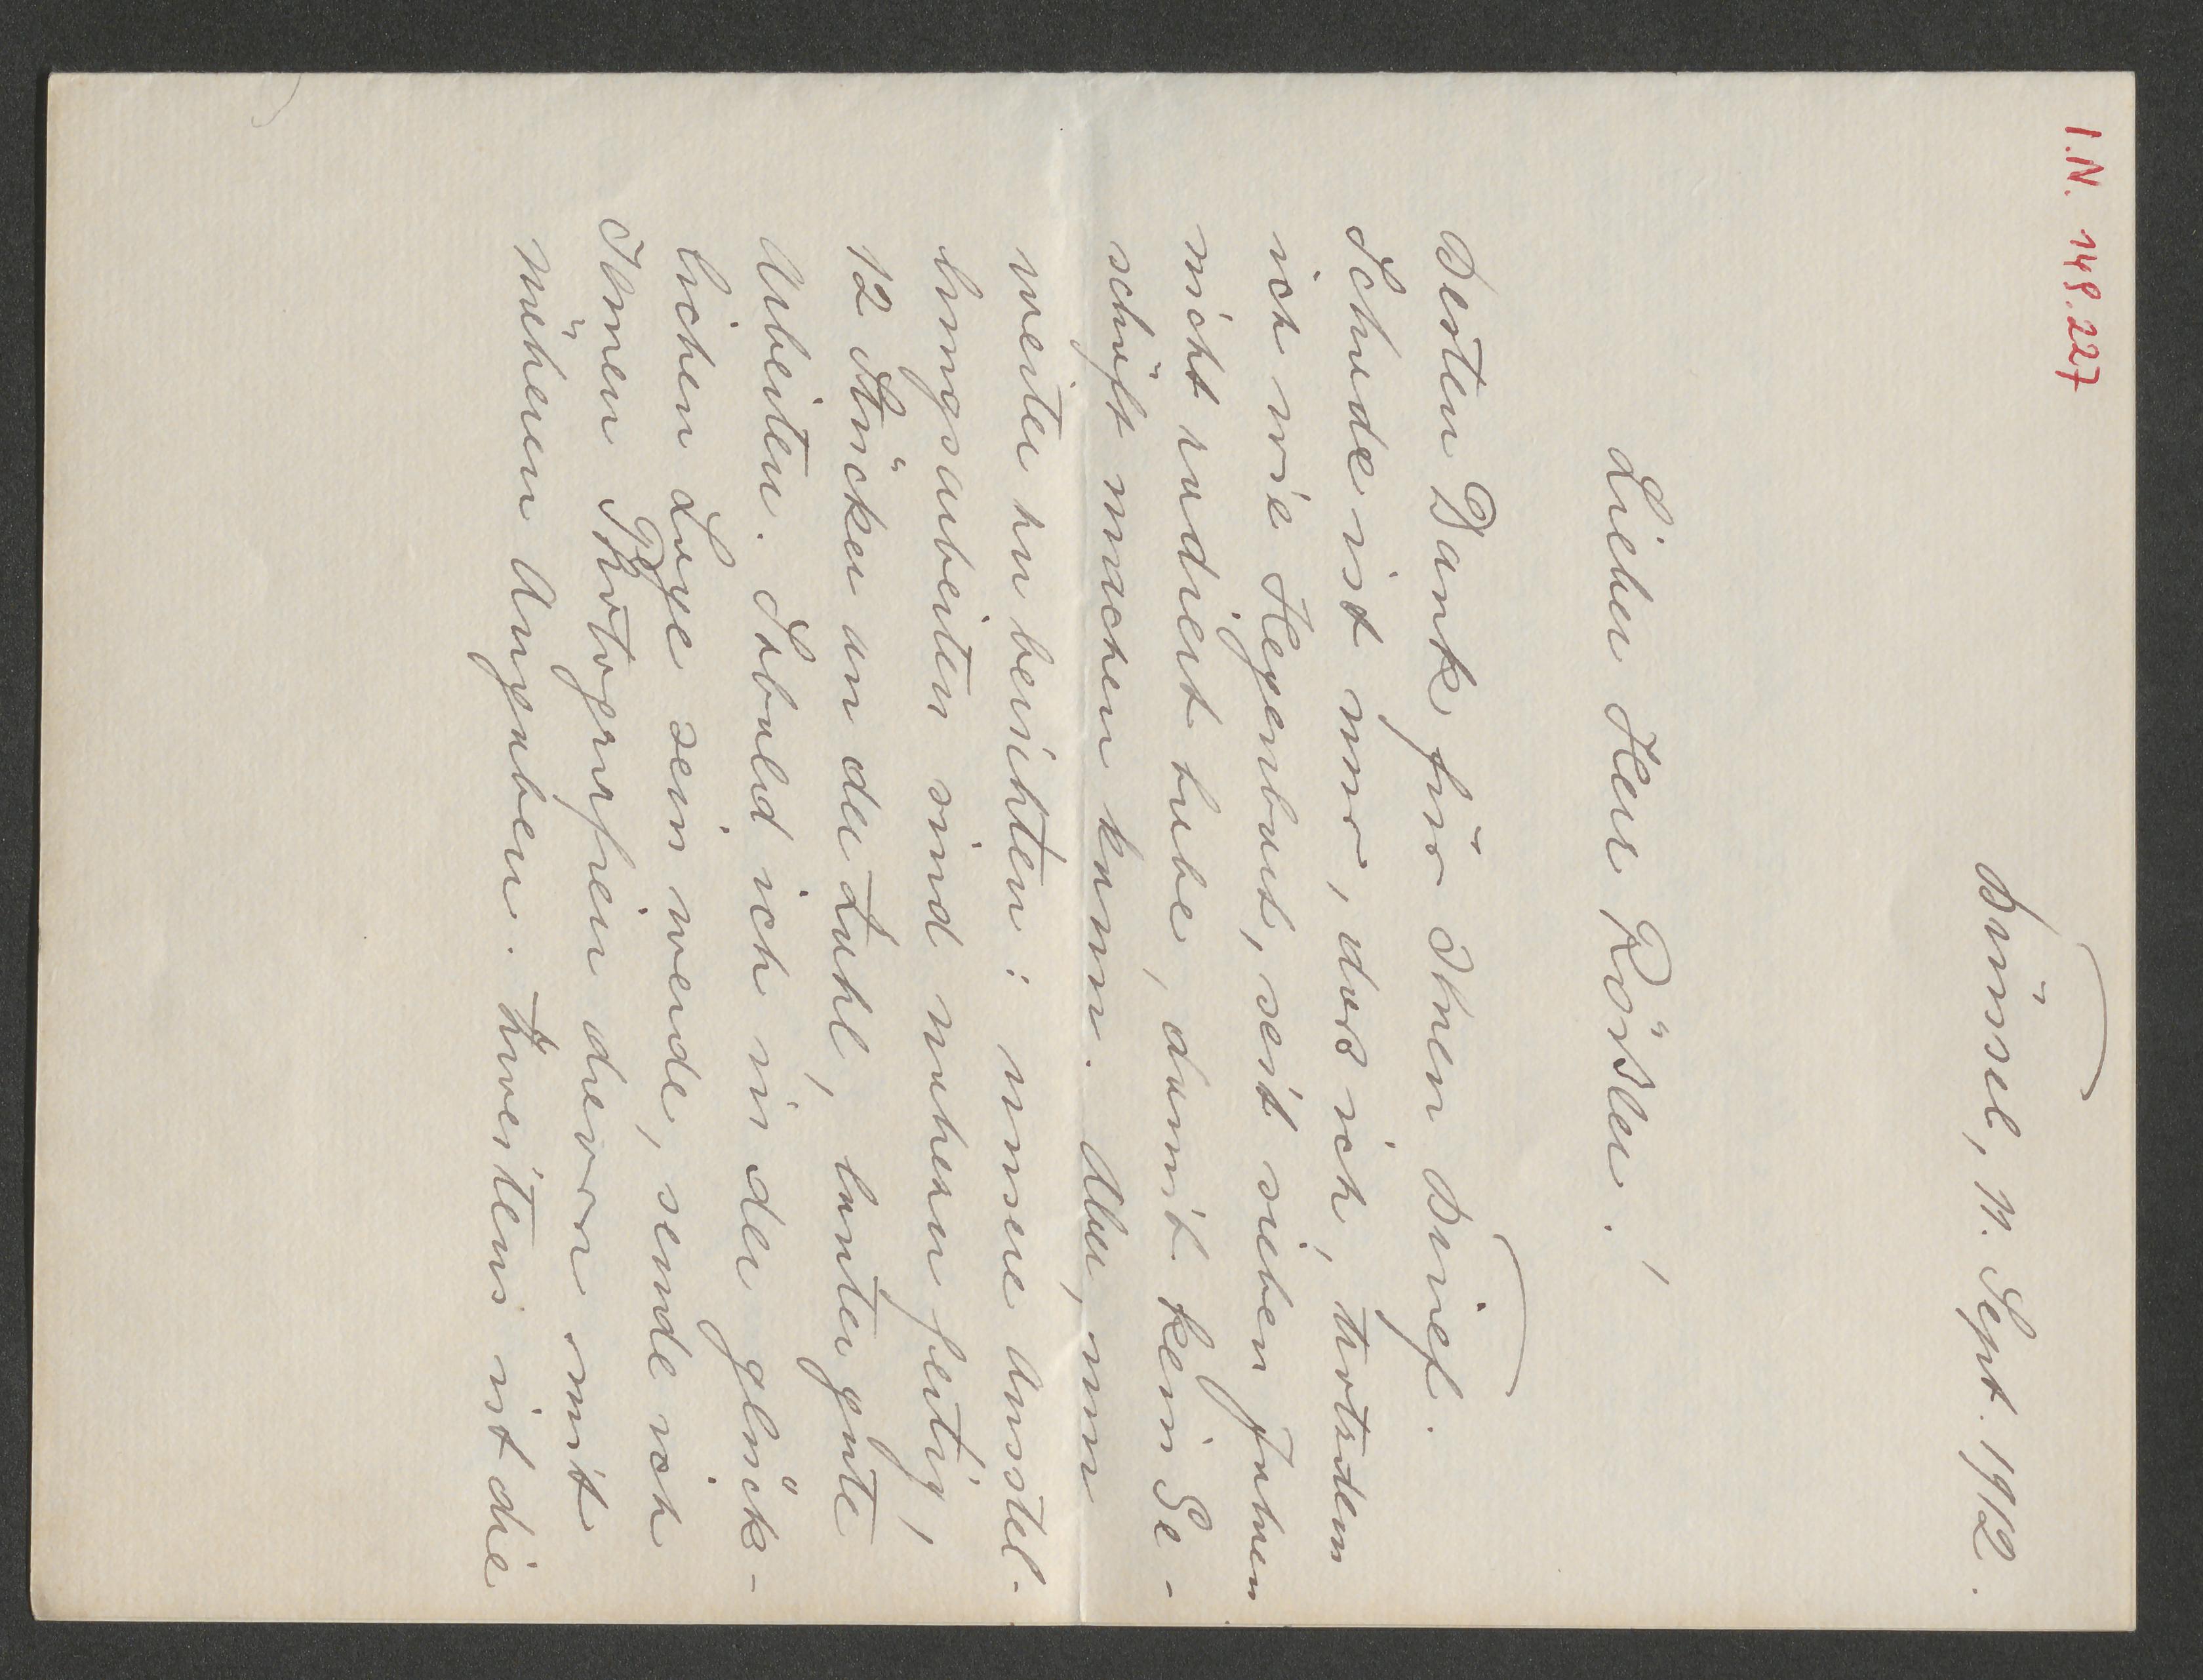 I.N. 149.227
Brüssel, 11. Sept. 1912.
Lieber Herr Rössler!
Besten Dank für Ihnen Brief.
Schade ist nur, dass ich, trotzdem
ich wie Hegenbart, seit sieben Jahren
nicht radiert habe, damit kein Ge-
schäft machen kann. Aber, nun
weiter zu berichten: unsere Ausstel-
lungsarbeiten sind nahezu fertig,
12 Stücker an der Zahl, lauter gute
Arbeiten. Sobald ich in der glück-
lichen Lage sein werde, sende ich
Ihnen Photografien davon mit
näheren Angaben. Zweitens ist die